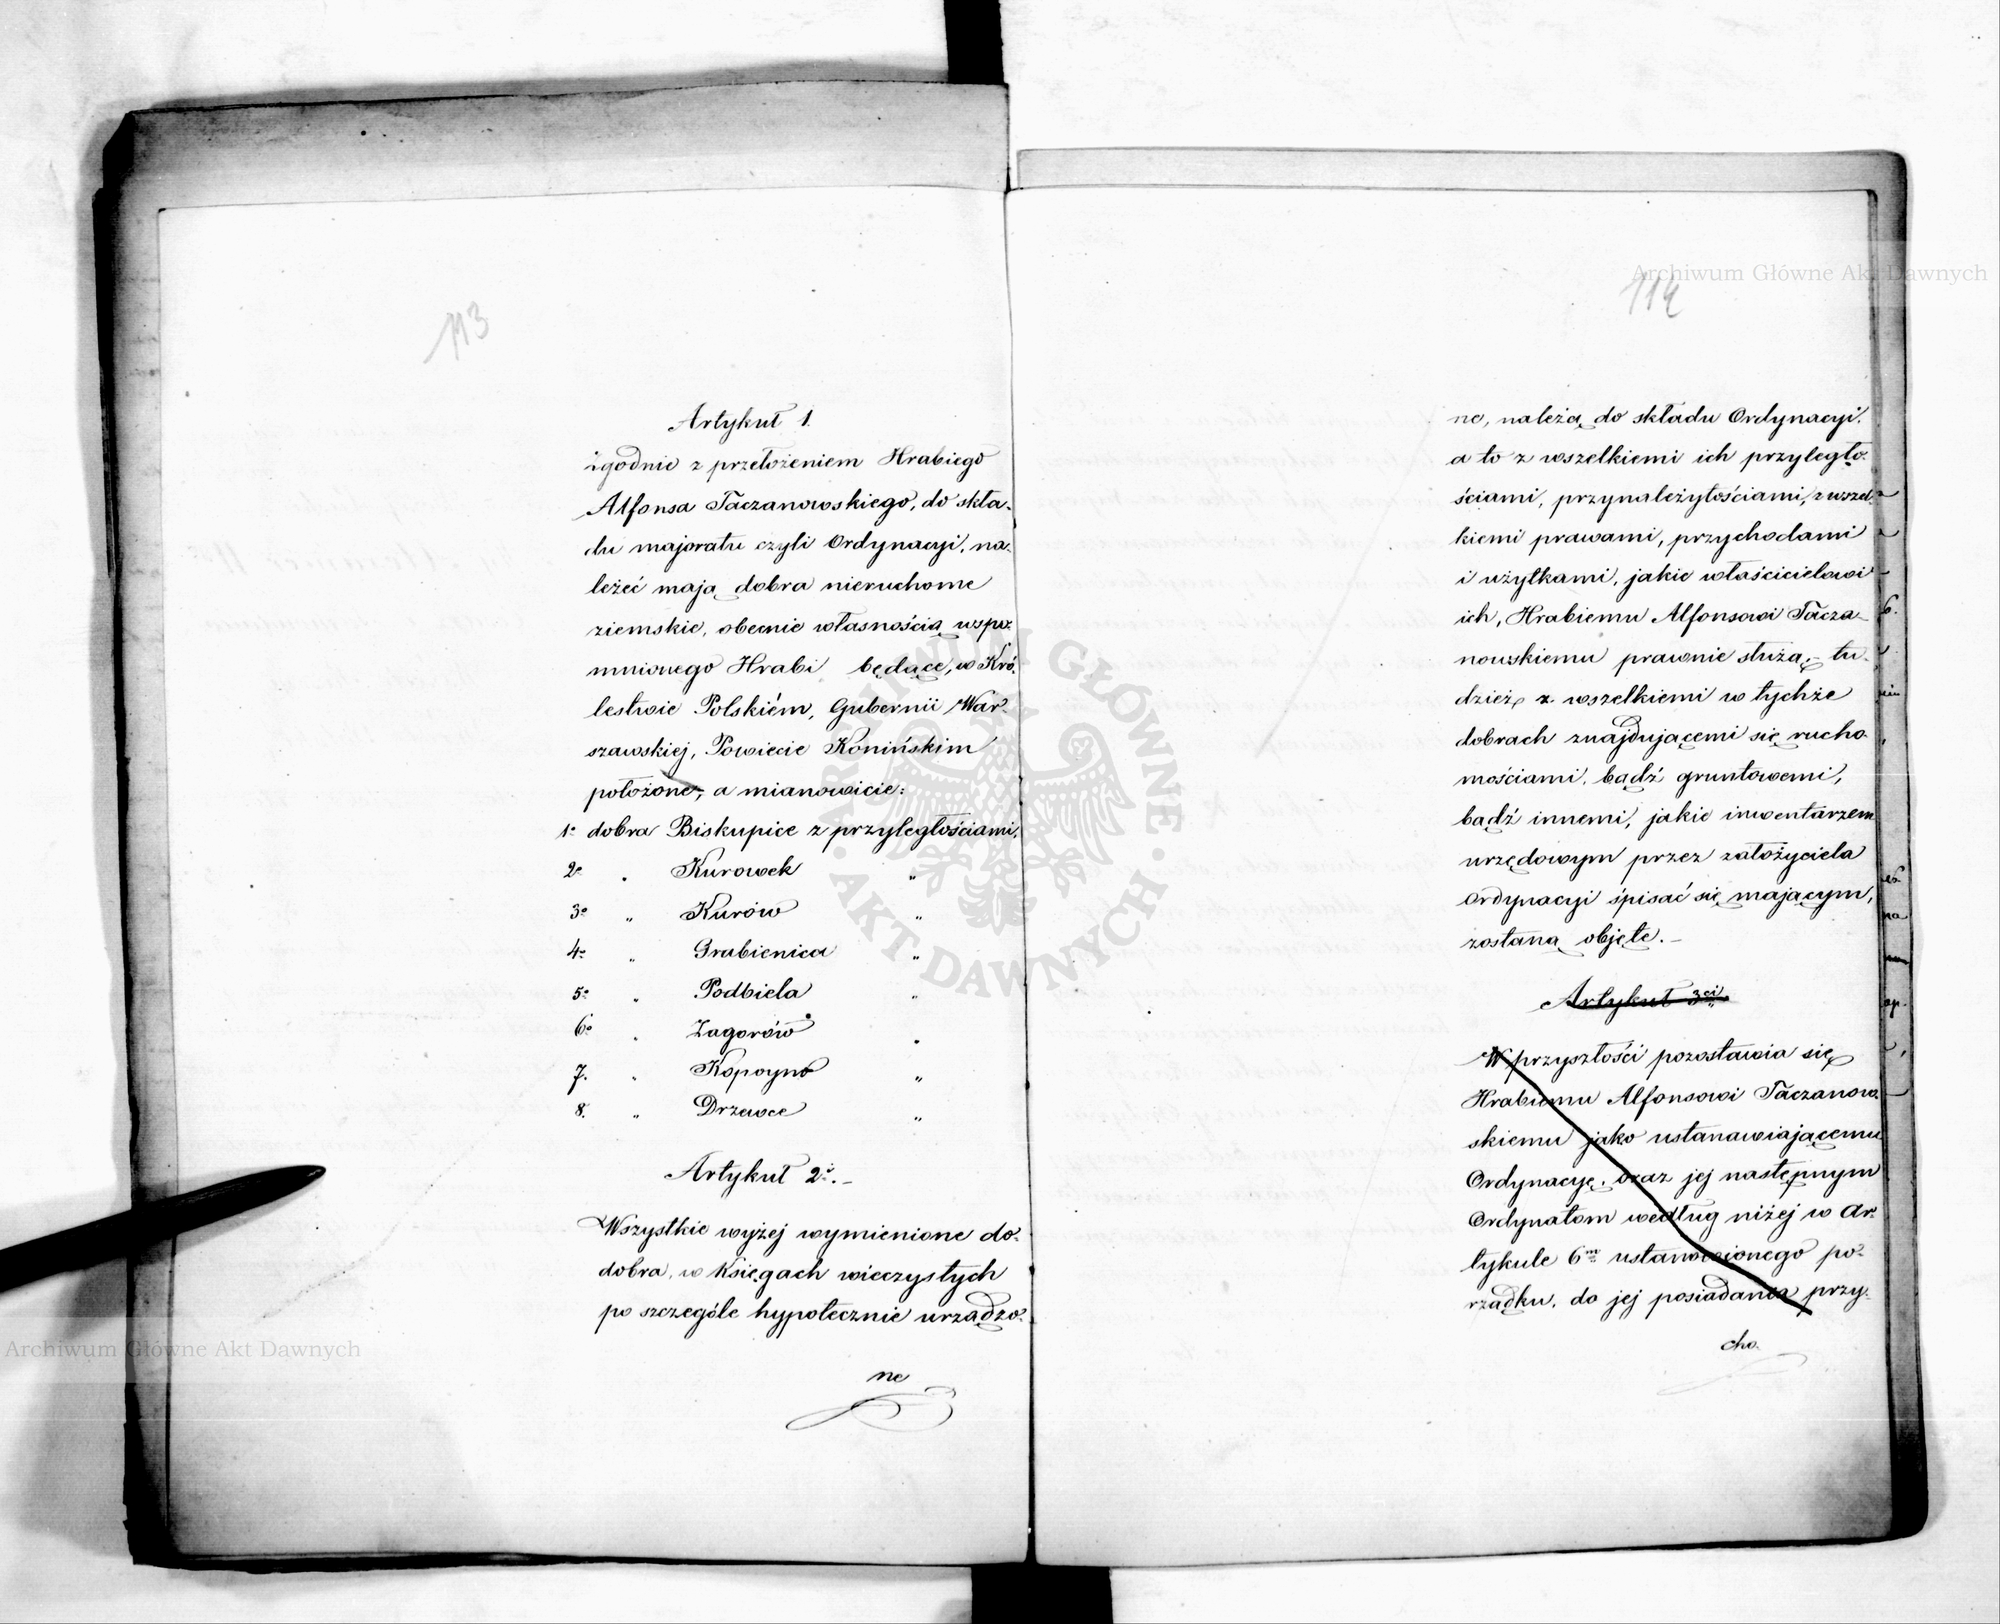 113
Artykuł 1.
Zgodnie z przełożeniem Hrabiego
Alfonsa Taczanowskiego, do skła-
du majoratu czyli Ordynacyi, na-
leżeć mają dobra nieruchome
ziemskie, obecnie własnością wspo-
mnionego Hrabi będące, w Kró-
lestwie Polskiém, Gubernii War-
szawskiej, Powiecie Konińskim
położone, a mianowicie:
1o dobra Biskupice z przyległościami,
2o " Kurowek "
3o " Kurów "
4o " Grabienica "
5o " Podbiela "
6o " Zagorów "
7. " Kopoyno "
8. " Drzewce "
Artykuł 2i.-
Wszystkie wyżej wymienione do-
dobra, w Księgach wieczystych
po szczególe hypotecznie urządzo-
ne
114
ne, należą do składu Ordynacyi,
a to z wszelkiemi ich przyległo-
ściami, przynależytościami, z wszel-
kiemi prawami, przychodami
i użytkami, jakie właścicielowi
ich, Hrabiemu Alfonsowi Tacza-
nowskiemu prawnie służą, - tu-
dzież z wszelkiemi w tychże
dobrach znajdującemi się rucho-
mościami, bądź gruntowemi,
bądź innemi, jakie inwentarzem
urzędowym przez założyciela
Ordynacyi śpisać się mającym,
zostaną objęte.-
Artykuł 3ci
W przyszłości pozostawia się
Hrabiemu Alfonsowi Taczanow-
skiemu jako ustanawiającemu
Ordynacyę, oraz jej następnym
Ordynatom według niżej w Ar-
tykule 6m ustanowionego po-
rządku, do jej posiadania przy-
cho-
Archiwum Główne Akt Dawnych
Archiwum Główne Akt Dawnych
ARCHIWUM GŁÓWNE · AKT DAWNYCH ·